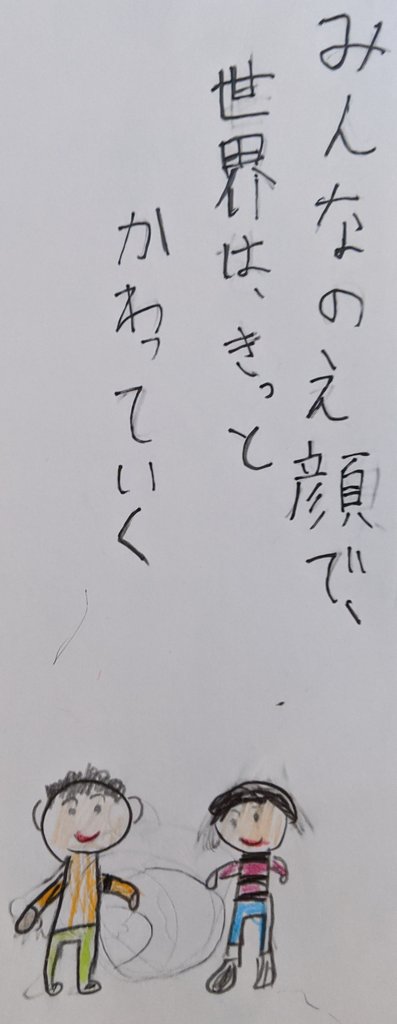 みんなのえ顔で、
世界は、きっと
かわっていく